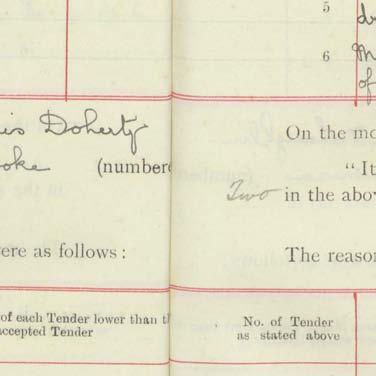 5
6
of
is Doherty
oke (number
ere as follows:
of each Tender lower than t
accepted Tender
On the mo
"It
Two in the abo
The reason
No. of Tender
as stated above